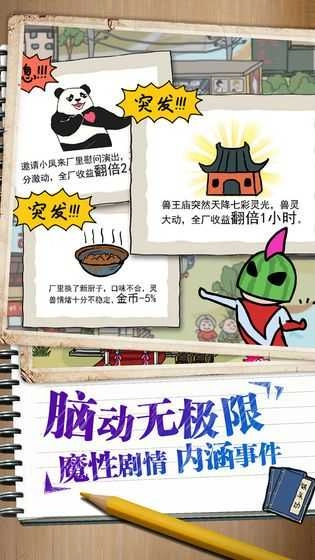 息!!!
突发!!!
邀请小凤来厂里慰问演出,
分激动,全厂收益翻倍2
兽王庙突然天降七彩灵光,兽灵
大动,全厂收益翻倍1小时。
突发!!!
厂里换了新厨子,口味不合,灵
兽情绪十分不稳定,金币-5%
脑动无极限
魔性剧情 内涵事件